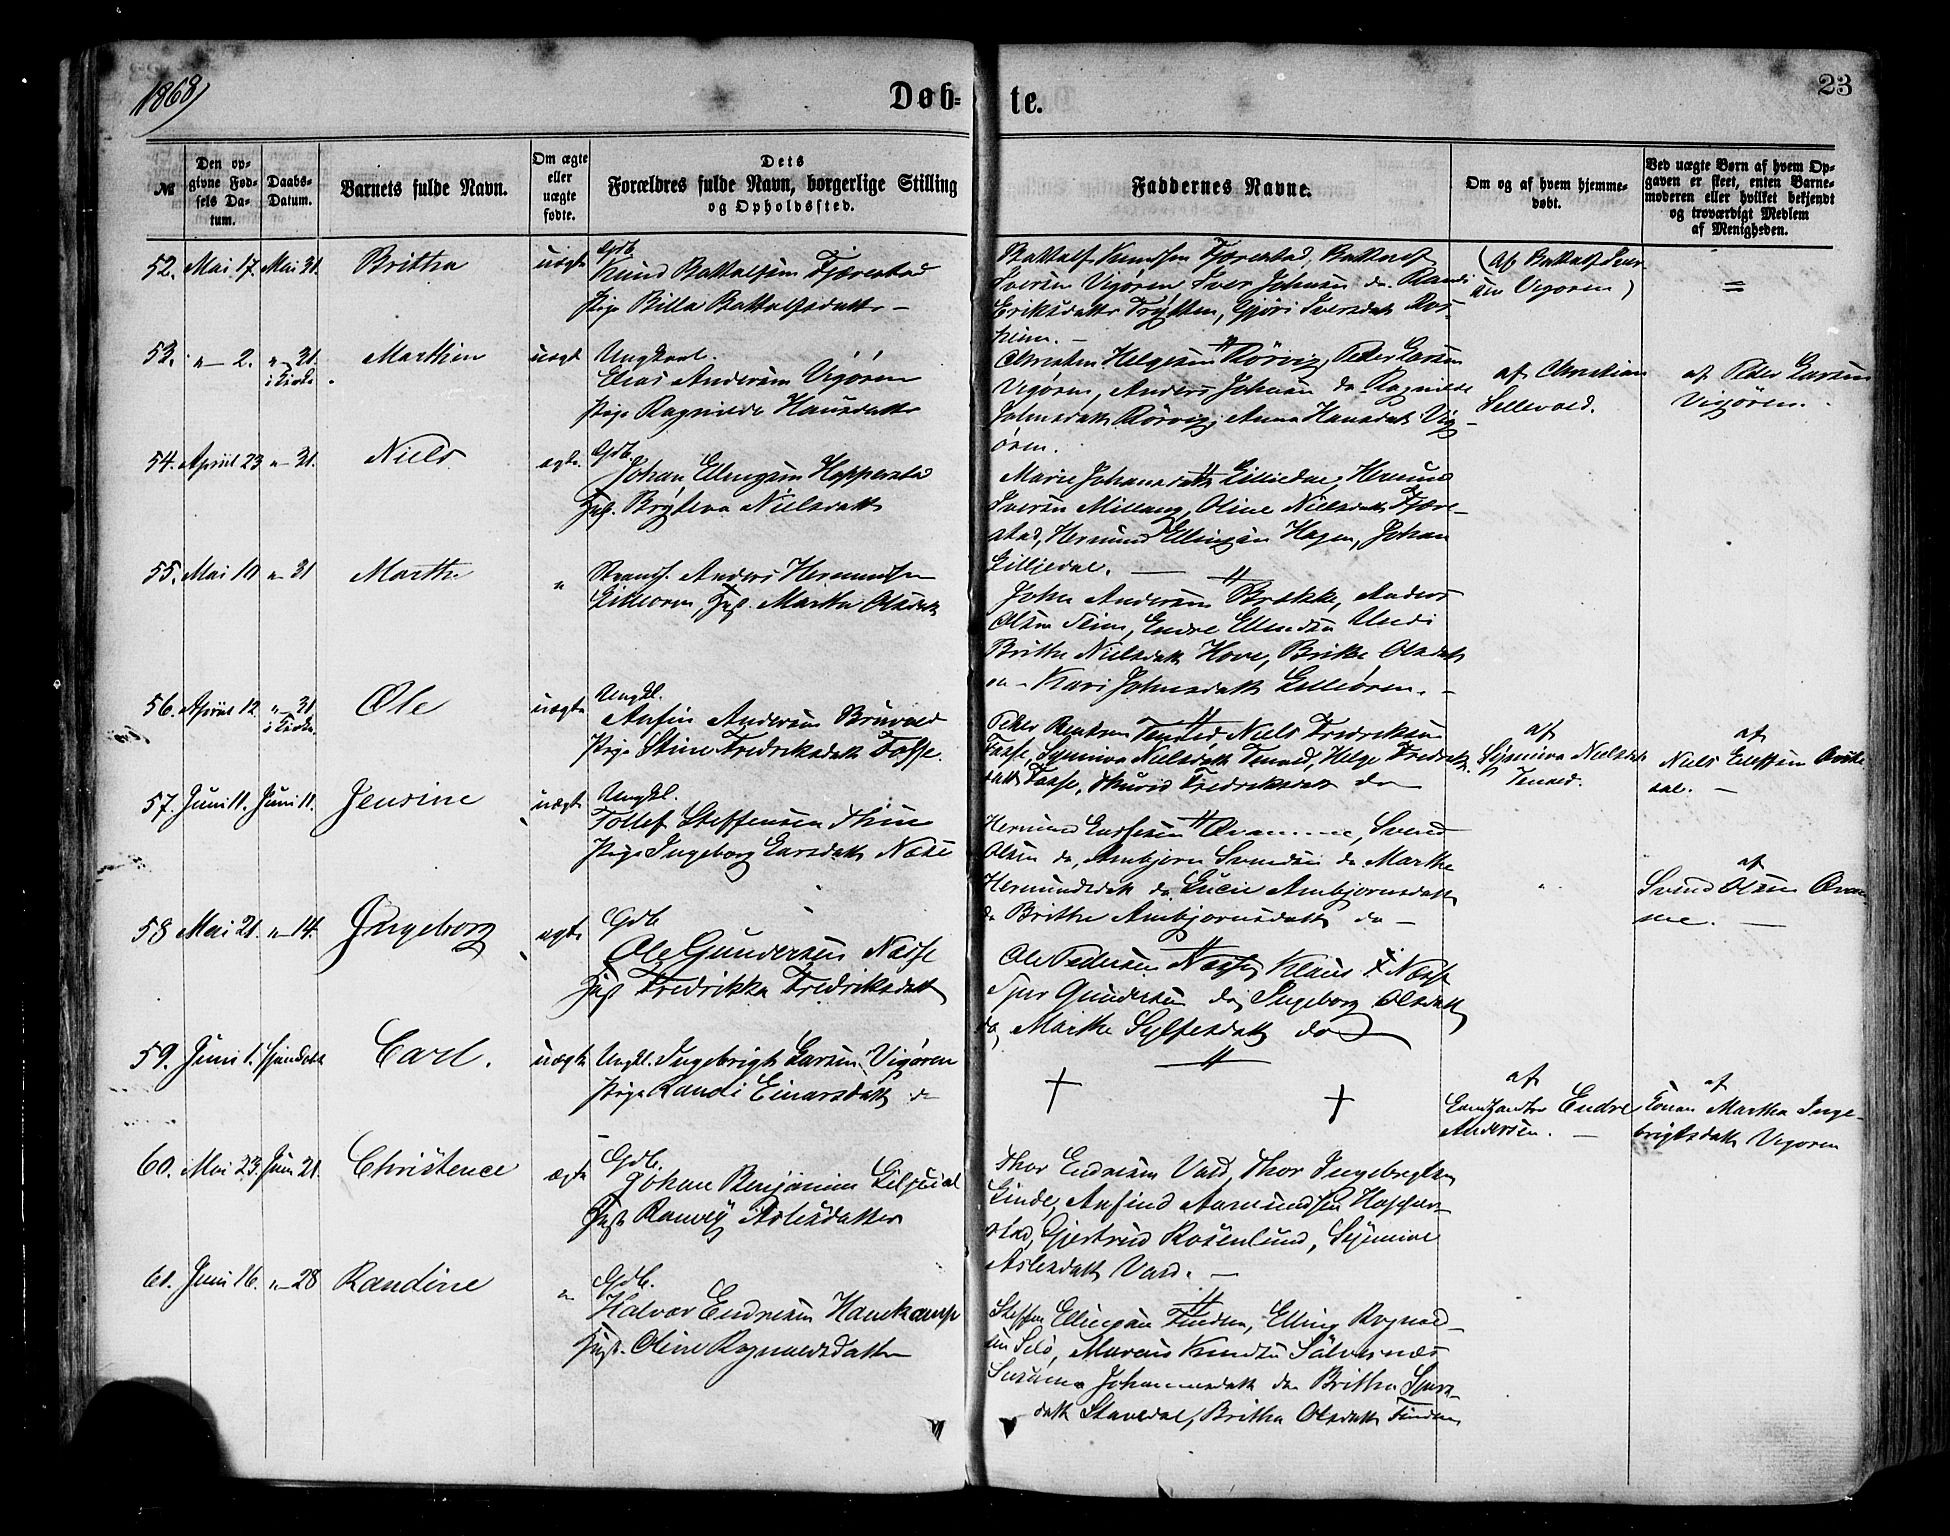 1868
Døb-
te.
23
№
Den op-
givne Fød-
sels Da-
tum.
Daabs-
Datum.
Barnets fulde Navn.
Om ægte
eller
uægte
fødte.
Dets
Forældres fulde Navn, borgerlige Stilling
og Opholdssted.
Faddernes Navne.
Om og af hvem hjemme-
døbt.
Ved uægte Børn af hvem Op-
gaven er skeet, enten Barne-
moderen eller hvilket bekjendt
og troværdigt Medlem
af Menigheden.
52. Mai 17. Mai 31. Brittha uægte Gdb.
Knud Battalfsen Fjærestad
Pige Billa Battalfsdatter —
Battalf Knudsen Fjærestad, Battalf
Iversen Vigøren Iver Johnsen do. Randi
Eriksdatter Gjøri Iversdatt
(af Battalf Iver-
sen Vigøren)
=
53. „— 2. „— 31.
i Kirke.
Marthin uægt Ungkarl.
Elias Andersen Vigøren
Pige Ragnilde Hansdatter
Christen Helgesen Rørvig, Peder Larsen
Vigøren, Anders Johnsen do Ragnilde
Johnsdatt Rørvig, Anna Hansdatt Vig-
øren.
af Christian
Sellevold.
af Peder Larsen
Vigøren.
54. April 23 „— 31. Niels ægte. Gdb.
Johan Ellingsen Hopperstad
Hust. Bryteva Nielsdatt
Marie Johansdatt Lilliedal, Hermund
Iversen Millang, Oline Nielsdatt Fjære-
stad, Hermund Ellingsen Hagen, Johan
Lilliedal. —
55. Mai 10 „— 31 Marthe „ Strands. Anders Hermundsen
Hust. Martha Olsdatt
John Andersen Brekke, Anders
Olsen Seim, Endre Ellendsen Undi
Brithe Nielsdatt Hove, Brithe Olsdatt
Kari Johnsdatt
56. April 12 „— 31
i Kirke.
Ole uægte Ungkl.
Anfin Andersen Bruvold
Pige Stine Fredriksdatt Fosse.
Peder Tenold Niels Fredriksen
Fosse, Synneva Nielsdatt Tenold, Helge Fredriks-
datt Fosse, Thurid Fredriksdatt do
af
Synneva Nielsdatt
Tenold.
af
Niels
57. Juni 11. Juni 11. Jensine uægte Ungkl.
Tollef Steffensen Thue
Pige Ingeborg Larsdatt Næse
Hermund Qvamme, Svend
Olsen do, Ambjørn Svendsen do Marthe
Hermundsdatt do, Lucie Ambjørnsdatt
do Brithe Ambjørnsdatt do —
„
af
Svend Olsen Qvam-
me. —
58 Mai 21. „— 14. Ingeborg ægte Gdb
Ole Gundersen Næsse
Hust Fredrikka Fredriksdatt
Ole Pedersen Næsse, Klaus Næsse
Sjur Gundersen do, Ingeborg Olsdatt
do, Marthe Sylfestdatt do
59. Juni 1. Hjemdøbt Carl. uægte Ungkl. Ingebrigt Larsen Vigøren
Pige Randi Einarsdatt do
† †
af
Endre
Andersen. —
af
Konen Martha Inge-
brigtsdatt Vigøren
60. Mai 23. Juni 21. Christence ægte Gdb.
Johan Benjamin
Hust. Ranveig Aslesdatter
Thor Endresen Vold, Thor Ingebrigtsen
Linde, Anfind Aamundsen Hopper-
stad, Gjertrud Rosenlund, Synneve
Aslesdatt Vold. —
61. Juni 16. „— 28 Randine „ Gdb.
Halvor Endresen Hanekamp
Hust. Oline Rognaldsdatter
Steffen Ellingsen Finden, Elling Rognald-
sen Selø, Marcus Knudsen Sålesnæs
Susanna Johannesdatt do Britha Sjurs-
datt Stavedal, Britha Olsdatt Finden